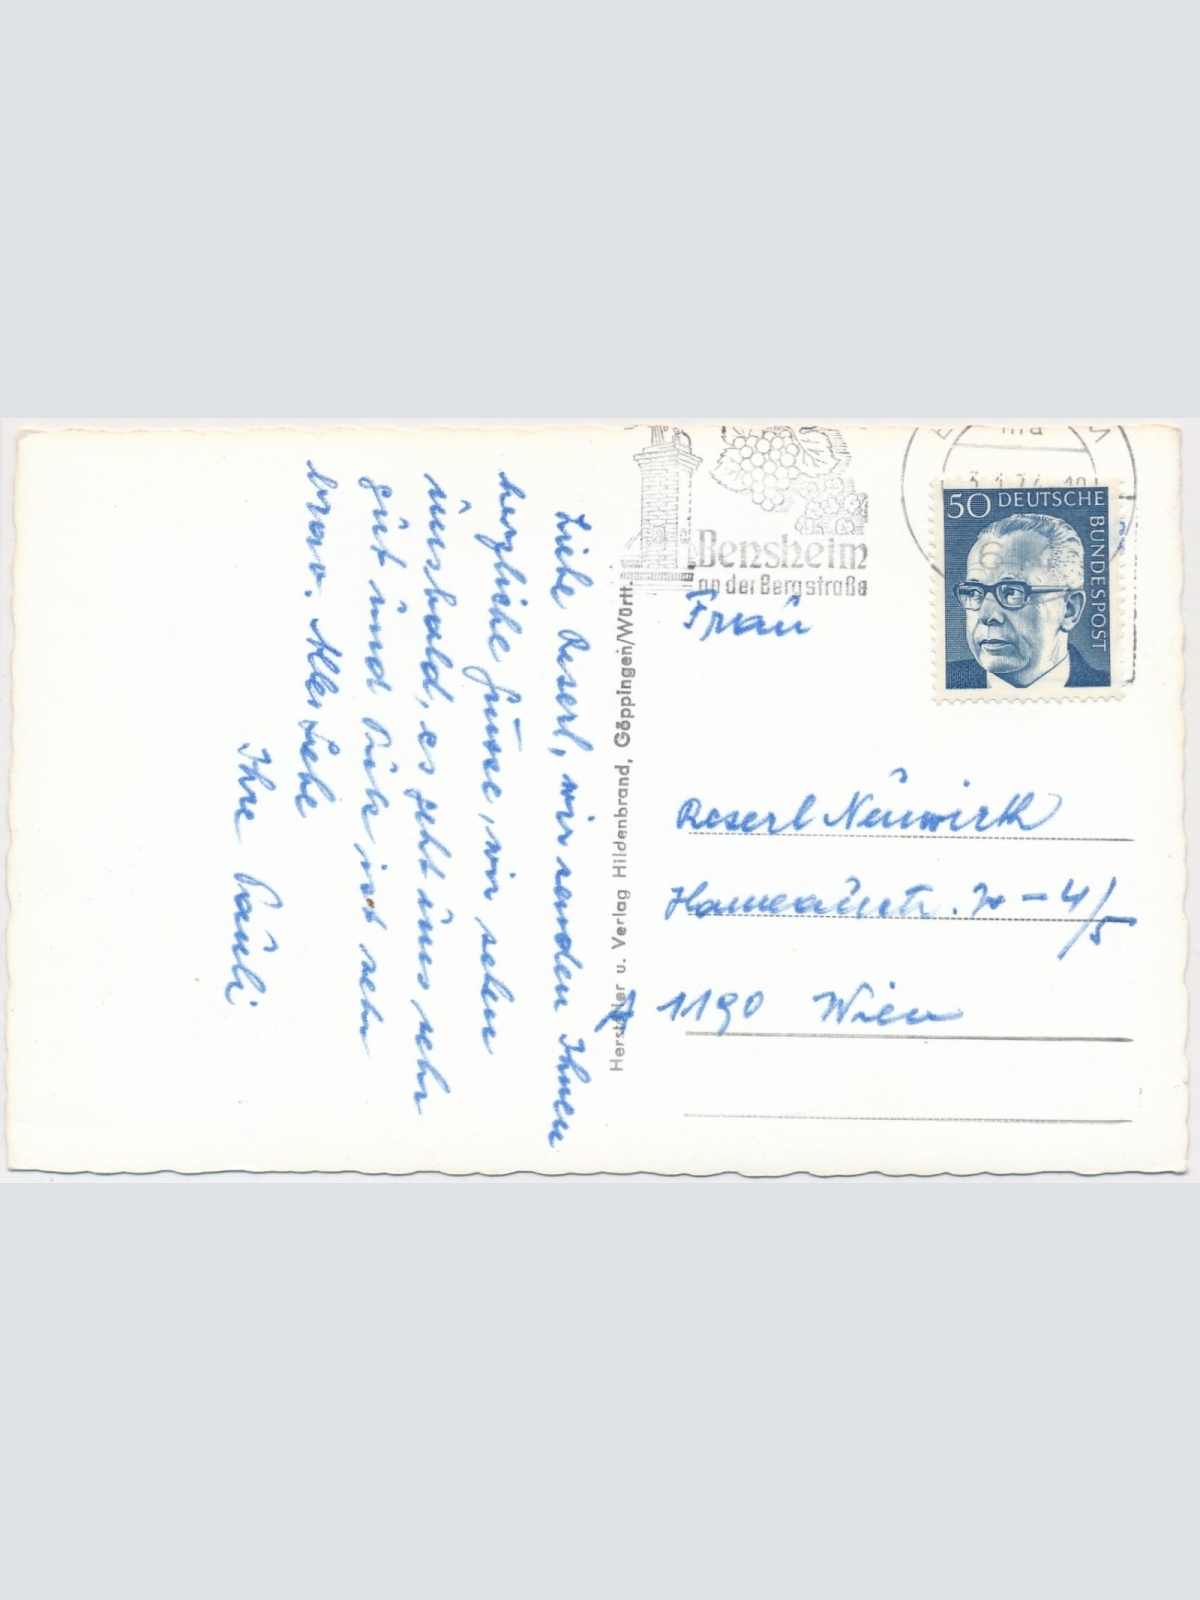 Liebe Reserl, wir senden Ihnen
herzliche Grüsse, wir sehen
uns bald, es geht uns sehr
gut und ist sehr
brav. Alles Liebe
Ihre Pauli
Hersteller u. Verlag Hildenbrand, Göppingen/Württ.
Bensheim
an der Bergstraße
3.1.74
6
50 DEUTSCHE
BUNDESPOST
Frau
Reserl Neuwirth
Hameaustr. - 4/5
A 1190 Wien